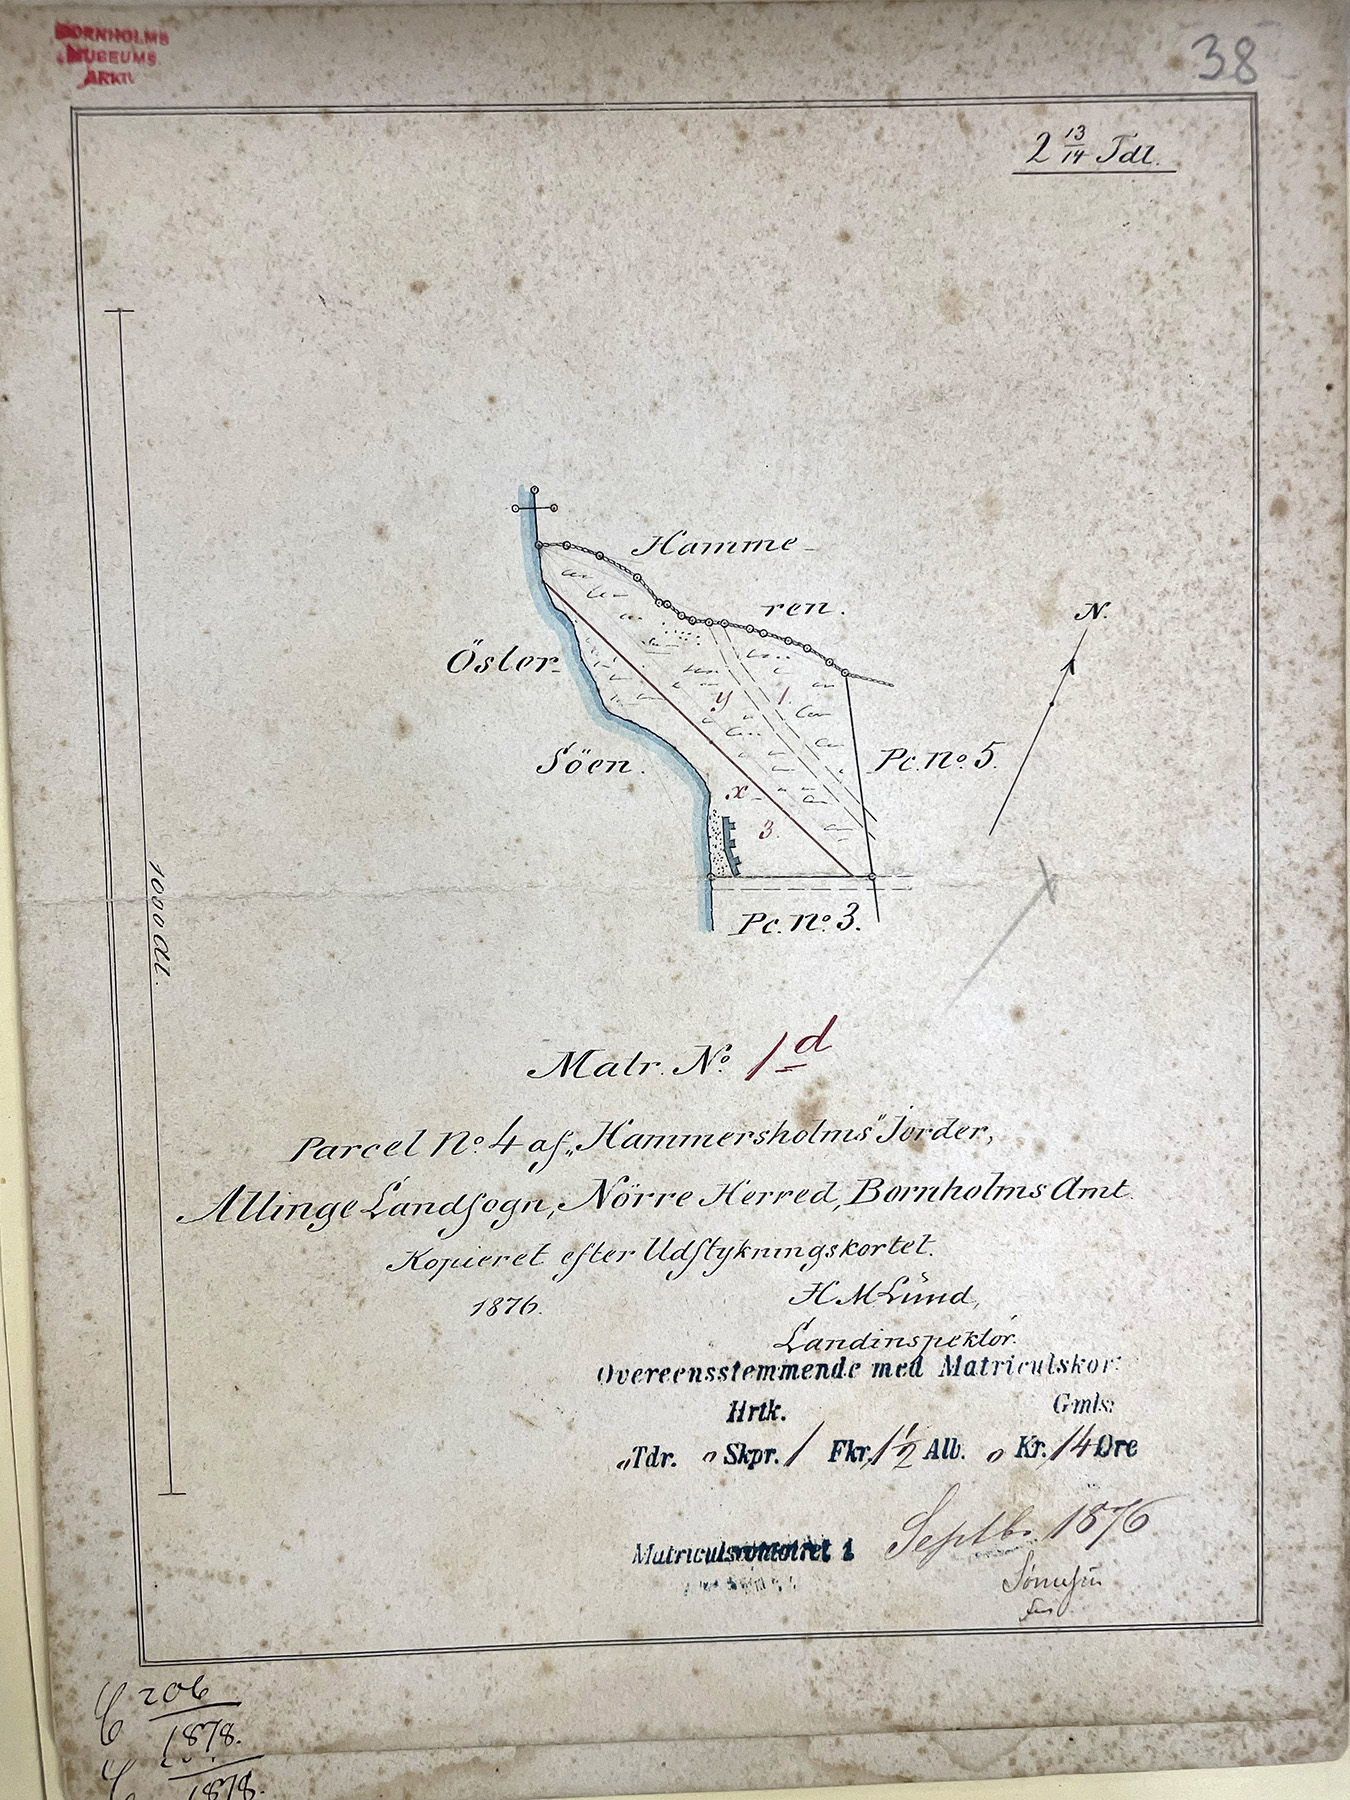 BORNHOLMS
MUSEUMS
ARKIV
38
2 13/14 Tdl.
Hamme-
ren.
N.
Öster-
Söen.
y
1.
Pc. No. 5.
x
3.
Pc. No. 3.
1000 Al.
Matr. No. 1d
Parcel No. 4 af „Hammersholms" Jorder,
Allinge Landsogn, Nörre Herred, Bornholms Amt.
Kopieret efter Udstykningskortet.
1876.
H M Lund,
Landinspektör.
Overeensstemmende med Matriculskor
Hrtk. Gmls:
„ Tdr. 0 Skpr. 1 Fkr. 1 1/2 Alb. 0 Kr. 14 Øre
Matriculscontoiret i Septbr. 1876
206
1878.
1878.